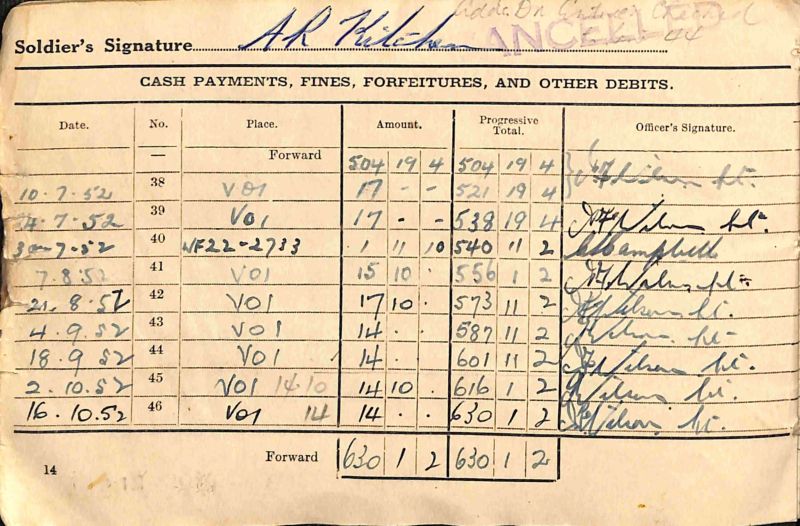 Adds On Entries Checked
Soldier's Signature AR Kitchen CANCELLED
CASH PAYMENTS, FINES, FORFEITURES, AND OTHER DEBITS.
Date. No. Place. Amount. Progressive Total. Officer's Signature.
— Forward 504 19 4 504 19 4
10.7.52 38 V01 17 - - 521 19 4 Wilson Lt.
4.7.52 39 V01 17 - - 538 19 4 Wilson Lt.
30-7-52 40 WF22-2733 1 11 10 540 11 2 Campbell
7.8.52 41 V01 15 10 . 556 1 2 Wilson Lt.
21.8.52 42 V01 17 10 . 573 11 2 Wilson Lt.
4.9.52 43 V01 14 . . 587 11 2 Wilson Lt
18.9.52 44 V01 14 . . 601 11 2 Wilson Lt.
2.10.52 45 V01 1410 14 10 . 616 1 2 Wilson Lt.
16.10.52 46 V01 14 14 . . 630 1 2 Wilson Lt.
Forward 630 1 2 630 1 2
14